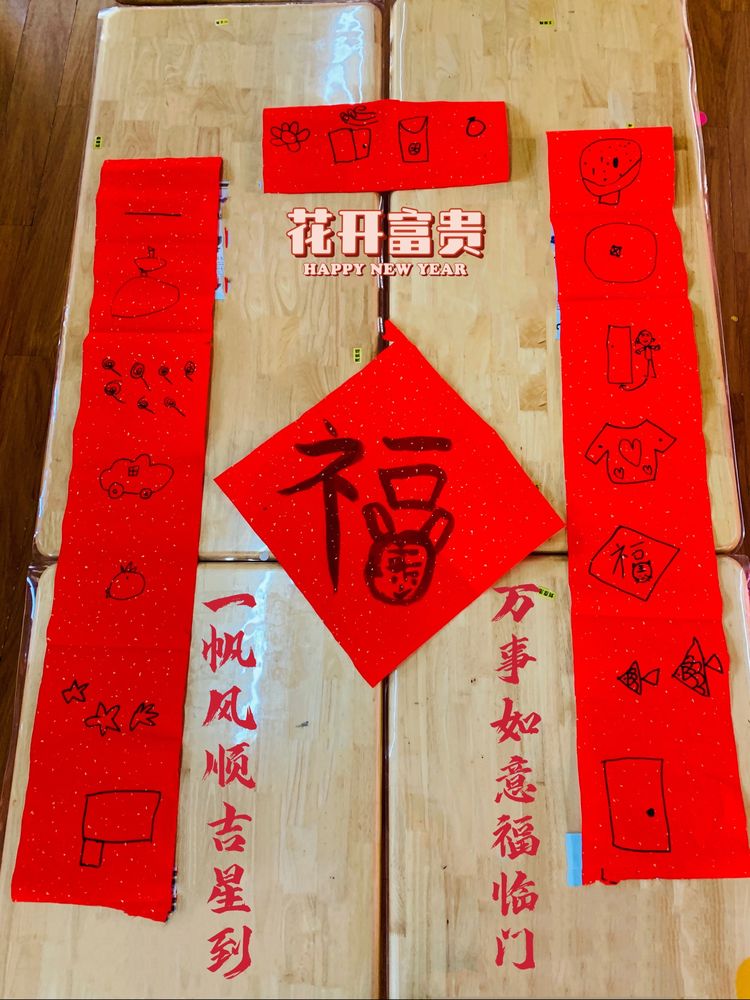 花开富贵
HAPPY NEW YEAR
福
福
一帆风顺吉星到
万事如意福临门